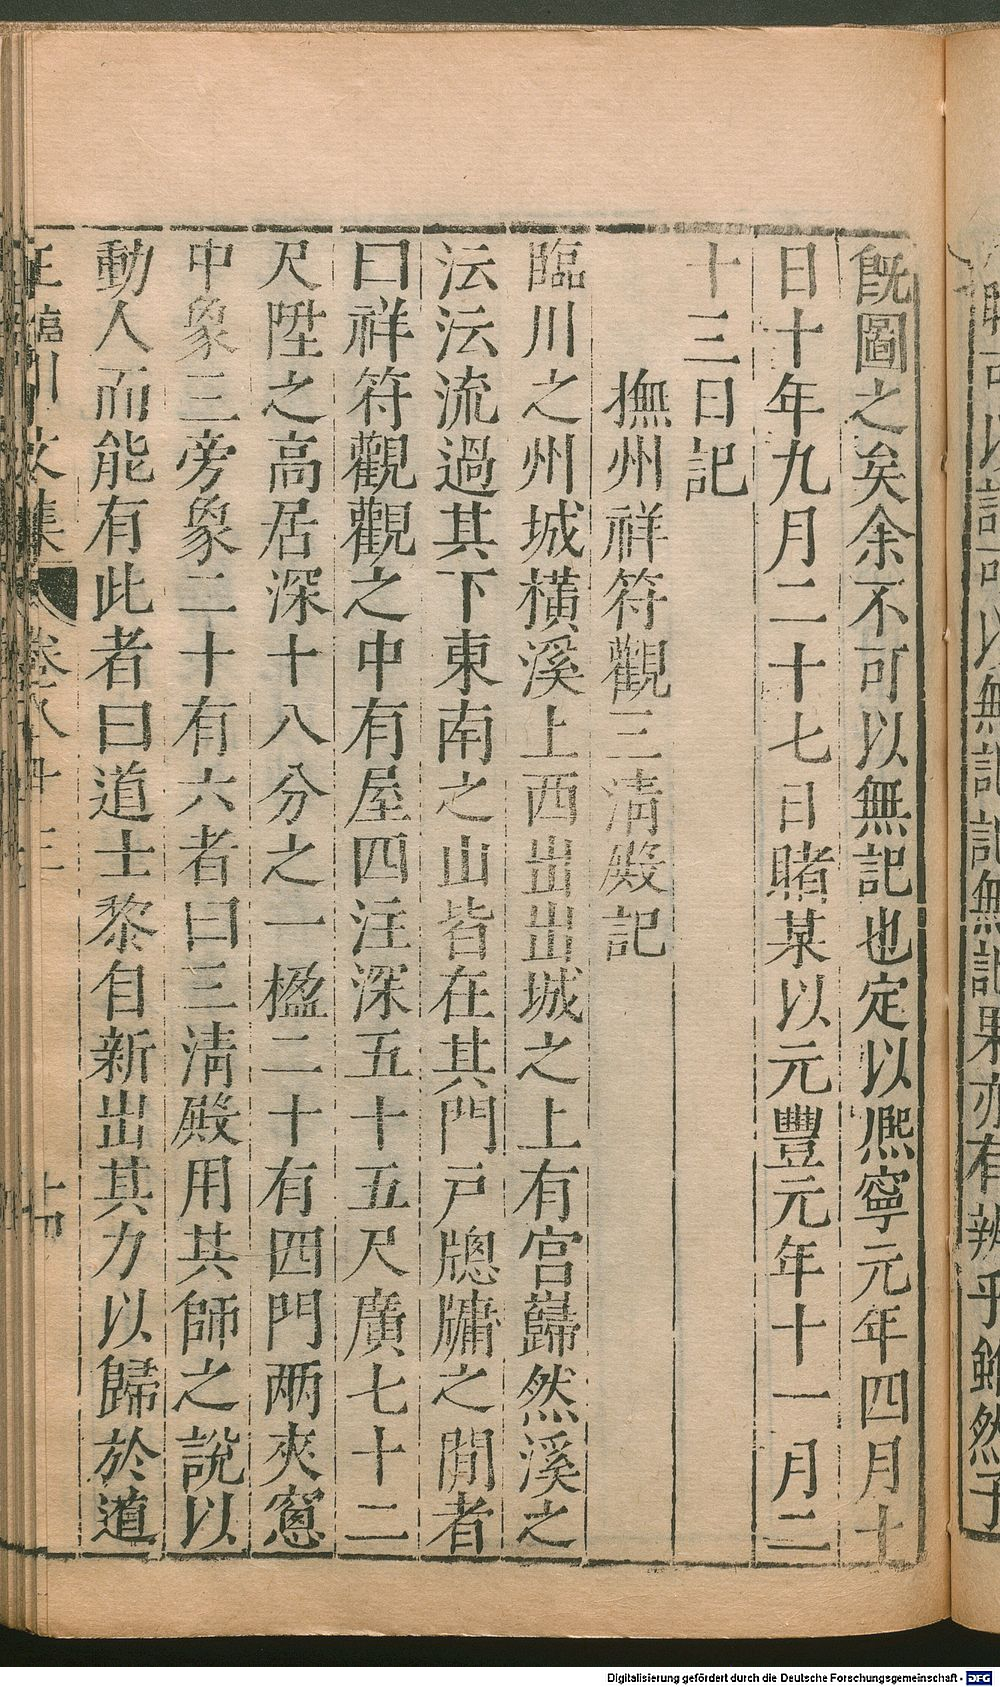 既圖之矣余不可以無記也定以熈寧元年四月十
日十年九月二十七日賭某以元豐元年十一月二
十三日記
撫州祥符觀三淸殿記
臨川之州城橫溪上西出出城之上有宮巋然溪之
沄沄流過其下東南之山皆在其門戸牕牗之閒者
曰祥符觀觀之中有屋四注深五十五尺廣七十二
尺陞之高居深十八分之一楹二十有四門兩夾窻
中象三旁象二十有六者曰三淸殿用其師之說以
動人而能有此者曰道士黎自新出其力以歸於道
王臨川文集 卷八十三 十四
Digitalisierung gefördert durch die Deutsche Forschungsgemeinschaft - DFG